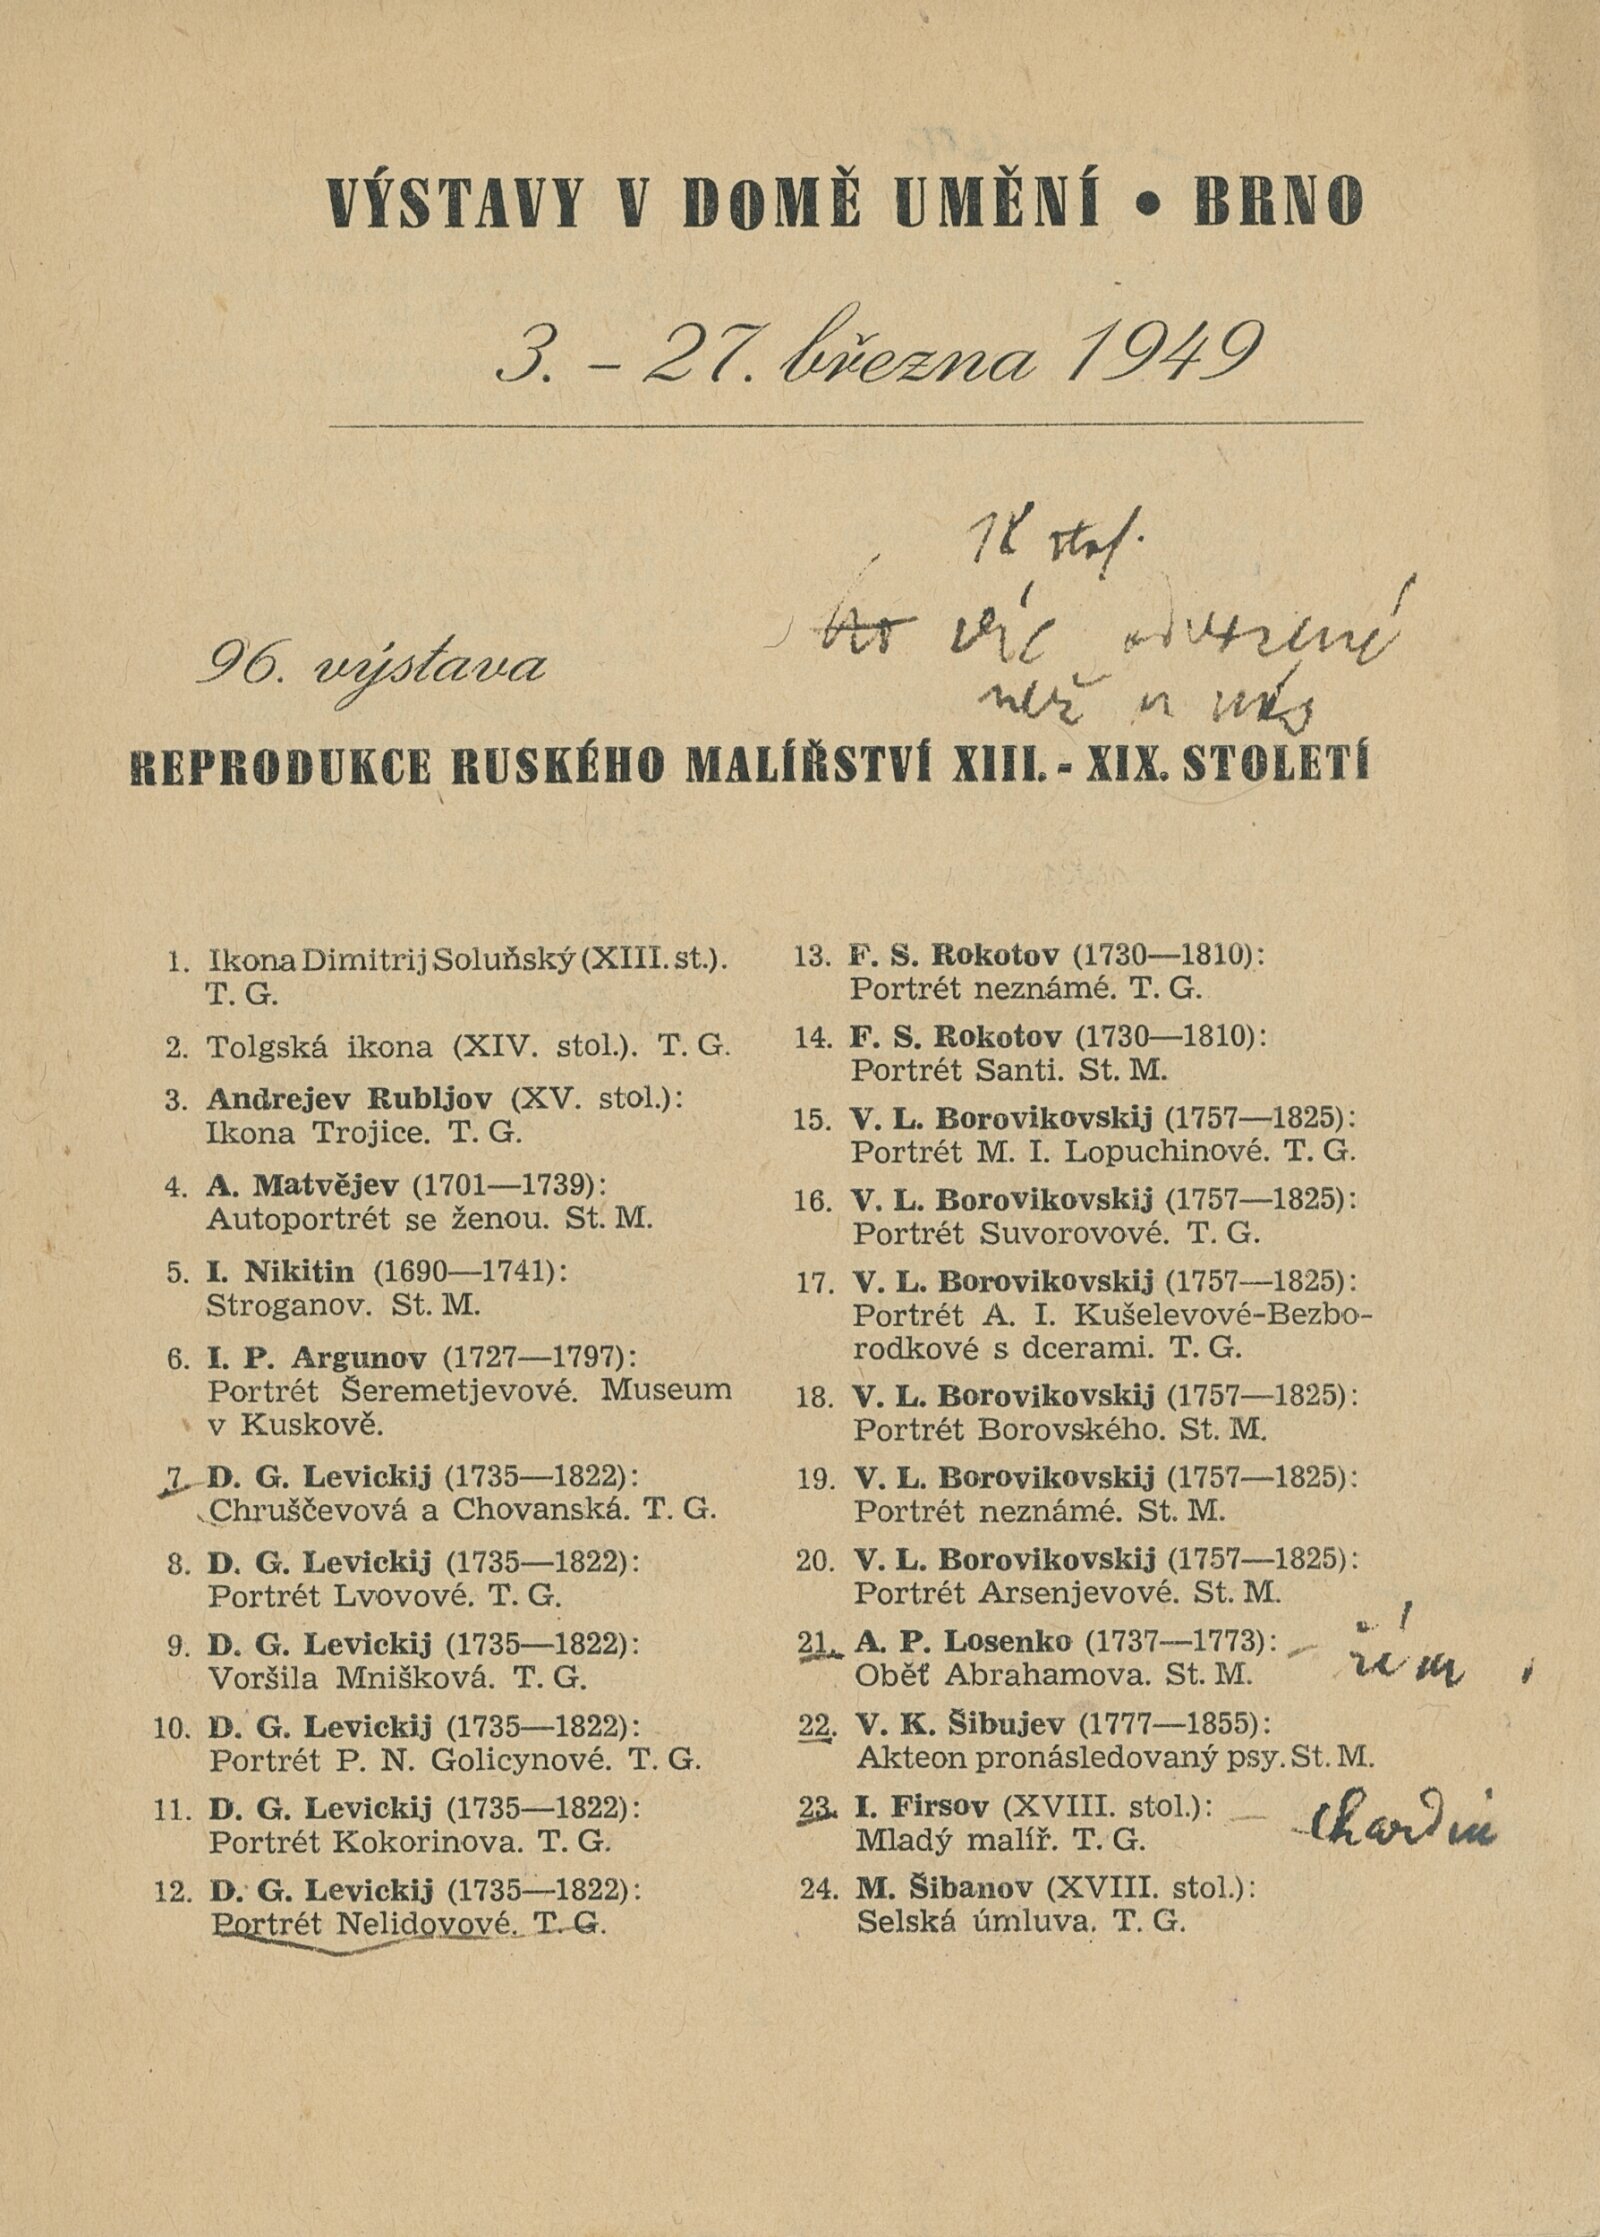 VÝSTAVY V DOMĚ UMĚNÍ • BRNO
3. – 27. března 1949
18 stol.
víc
než u nás
96. výstava
REPRODUKCE RUSKÉHO MALÍŘSTVÍ XIII. - XIX. STOLETÍ
1. Ikona Dimitrij Soluňský (XIII. st.).
T. G.
2. Tolgská ikona (XIV. stol.). T. G.
3. Andrejev Rubljov (XV. stol.):
Ikona Trojice. T. G.
4. A. Matvějev (1701—1739):
Autoportrét se ženou. St. M.
5. I. Nikitin (1690—1741):
Stroganov. St. M.
6. I. P. Argunov (1727—1797):
Portrét Šeremetjevové. Museum
v Kuskově.
7. D. G. Levickij (1735—1822):
Chruščevová a Chovanská. T. G.
8. D. G. Levickij (1735—1822):
Portrét Lvovové. T. G.
9. D. G. Levickij (1735—1822):
Voršila Mnišková. T. G.
10. D. G. Levickij (1735—1822):
Portrét P. N. Golicynové. T. G.
11. D. G. Levickij (1735—1822):
Portrét Kokorinova. T. G.
12. D. G. Levickij (1735—1822):
Portrét Nelidovové. T. G.
13. F. S. Rokotov (1730—1810):
Portrét neznámé. T. G.
14. F. S. Rokotov (1730—1810):
Portrét Santi. St. M.
15. V. L. Borovikovskij (1757—1825):
Portrét M. I. Lopuchinové. T. G.
16. V. L. Borovikovskij (1757—1825):
Portrét Suvorovové. T. G.
17. V. L. Borovikovskij (1757—1825):
Portrét A. I. Kušelevové-Bezbo-
rodkové s dcerami. T. G.
18. V. L. Borovikovskij (1757—1825):
Portrét Borovského. St. M.
19. V. L. Borovikovskij (1757—1825):
Portrét neznámé. St. M.
20. V. L. Borovikovskij (1757—1825):
Portrét Arsenjevové. St. M.
21. A. P. Losenko (1737—1773): – řím
Oběť Abrahamova. St. M.
22. V. K. Šibujev (1777—1855):
Akteon pronásledovaný psy. St. M.
23. I. Firsov (XVIII. stol.): – Chardin
Mladý malíř. T. G.
24. M. Šibanov (XVIII. stol.):
Selská úmluva. T. G.